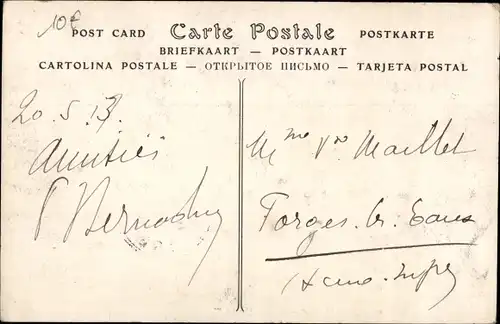 10€
POST CARD Carte Postale POSTKARTE
BRIEFKAART — POSTKAART
CARTOLINA POSTALE — ОТКРЫТОЕ ПИСЬМО — TARJETA POSTAL
20.5.13.
Amitiés
Mme Vve Maillet
Forges les Eaux